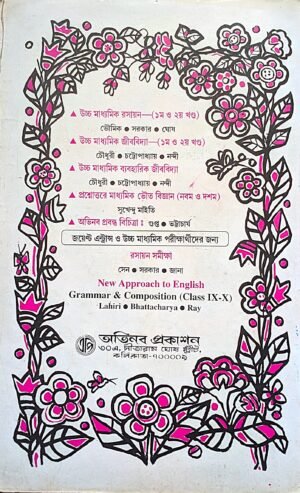 ▲ উচ্চ মাধ্যমিক রসায়ন—(১ম ও ২য় খণ্ড)
ভৌমিক • সরকার • ঘোষ
▲ উচ্চ মাধ্যমিক জীববিদ্যা—(১ম ও ২য় খণ্ড)
চৌধুরী • চট্টোপাধ্যায় • নন্দী
▲ উচ্চ মাধ্যমিক ব্যবহারিক জীববিদ্যা
চৌধুরী • চট্টোপাধ্যায় • নন্দী
▲ প্রশ্নোত্তরে মাধ্যমিক ভৌত বিজ্ঞান (নবম ও দশম)
সুখেন্দু মাইতি
▲ অভিনব প্রবন্ধ বিচিত্রা : গুপ্ত • ভট্টাচার্য
জয়েন্ট এন্ট্রান্স ও উচ্চ মাধ্যমিক পরীক্ষার্থীদের জন্য
রসায়ন সমীক্ষা
সেন • সরকার • জানা
New Approach to English
Grammar & Composition (Class IX-X)
Lahiri • Bhattacharya • Ray
অভিনব প্রকাশন
ঘোষ স্ট্রীট,
কলিকাতা-৭০০০০৯